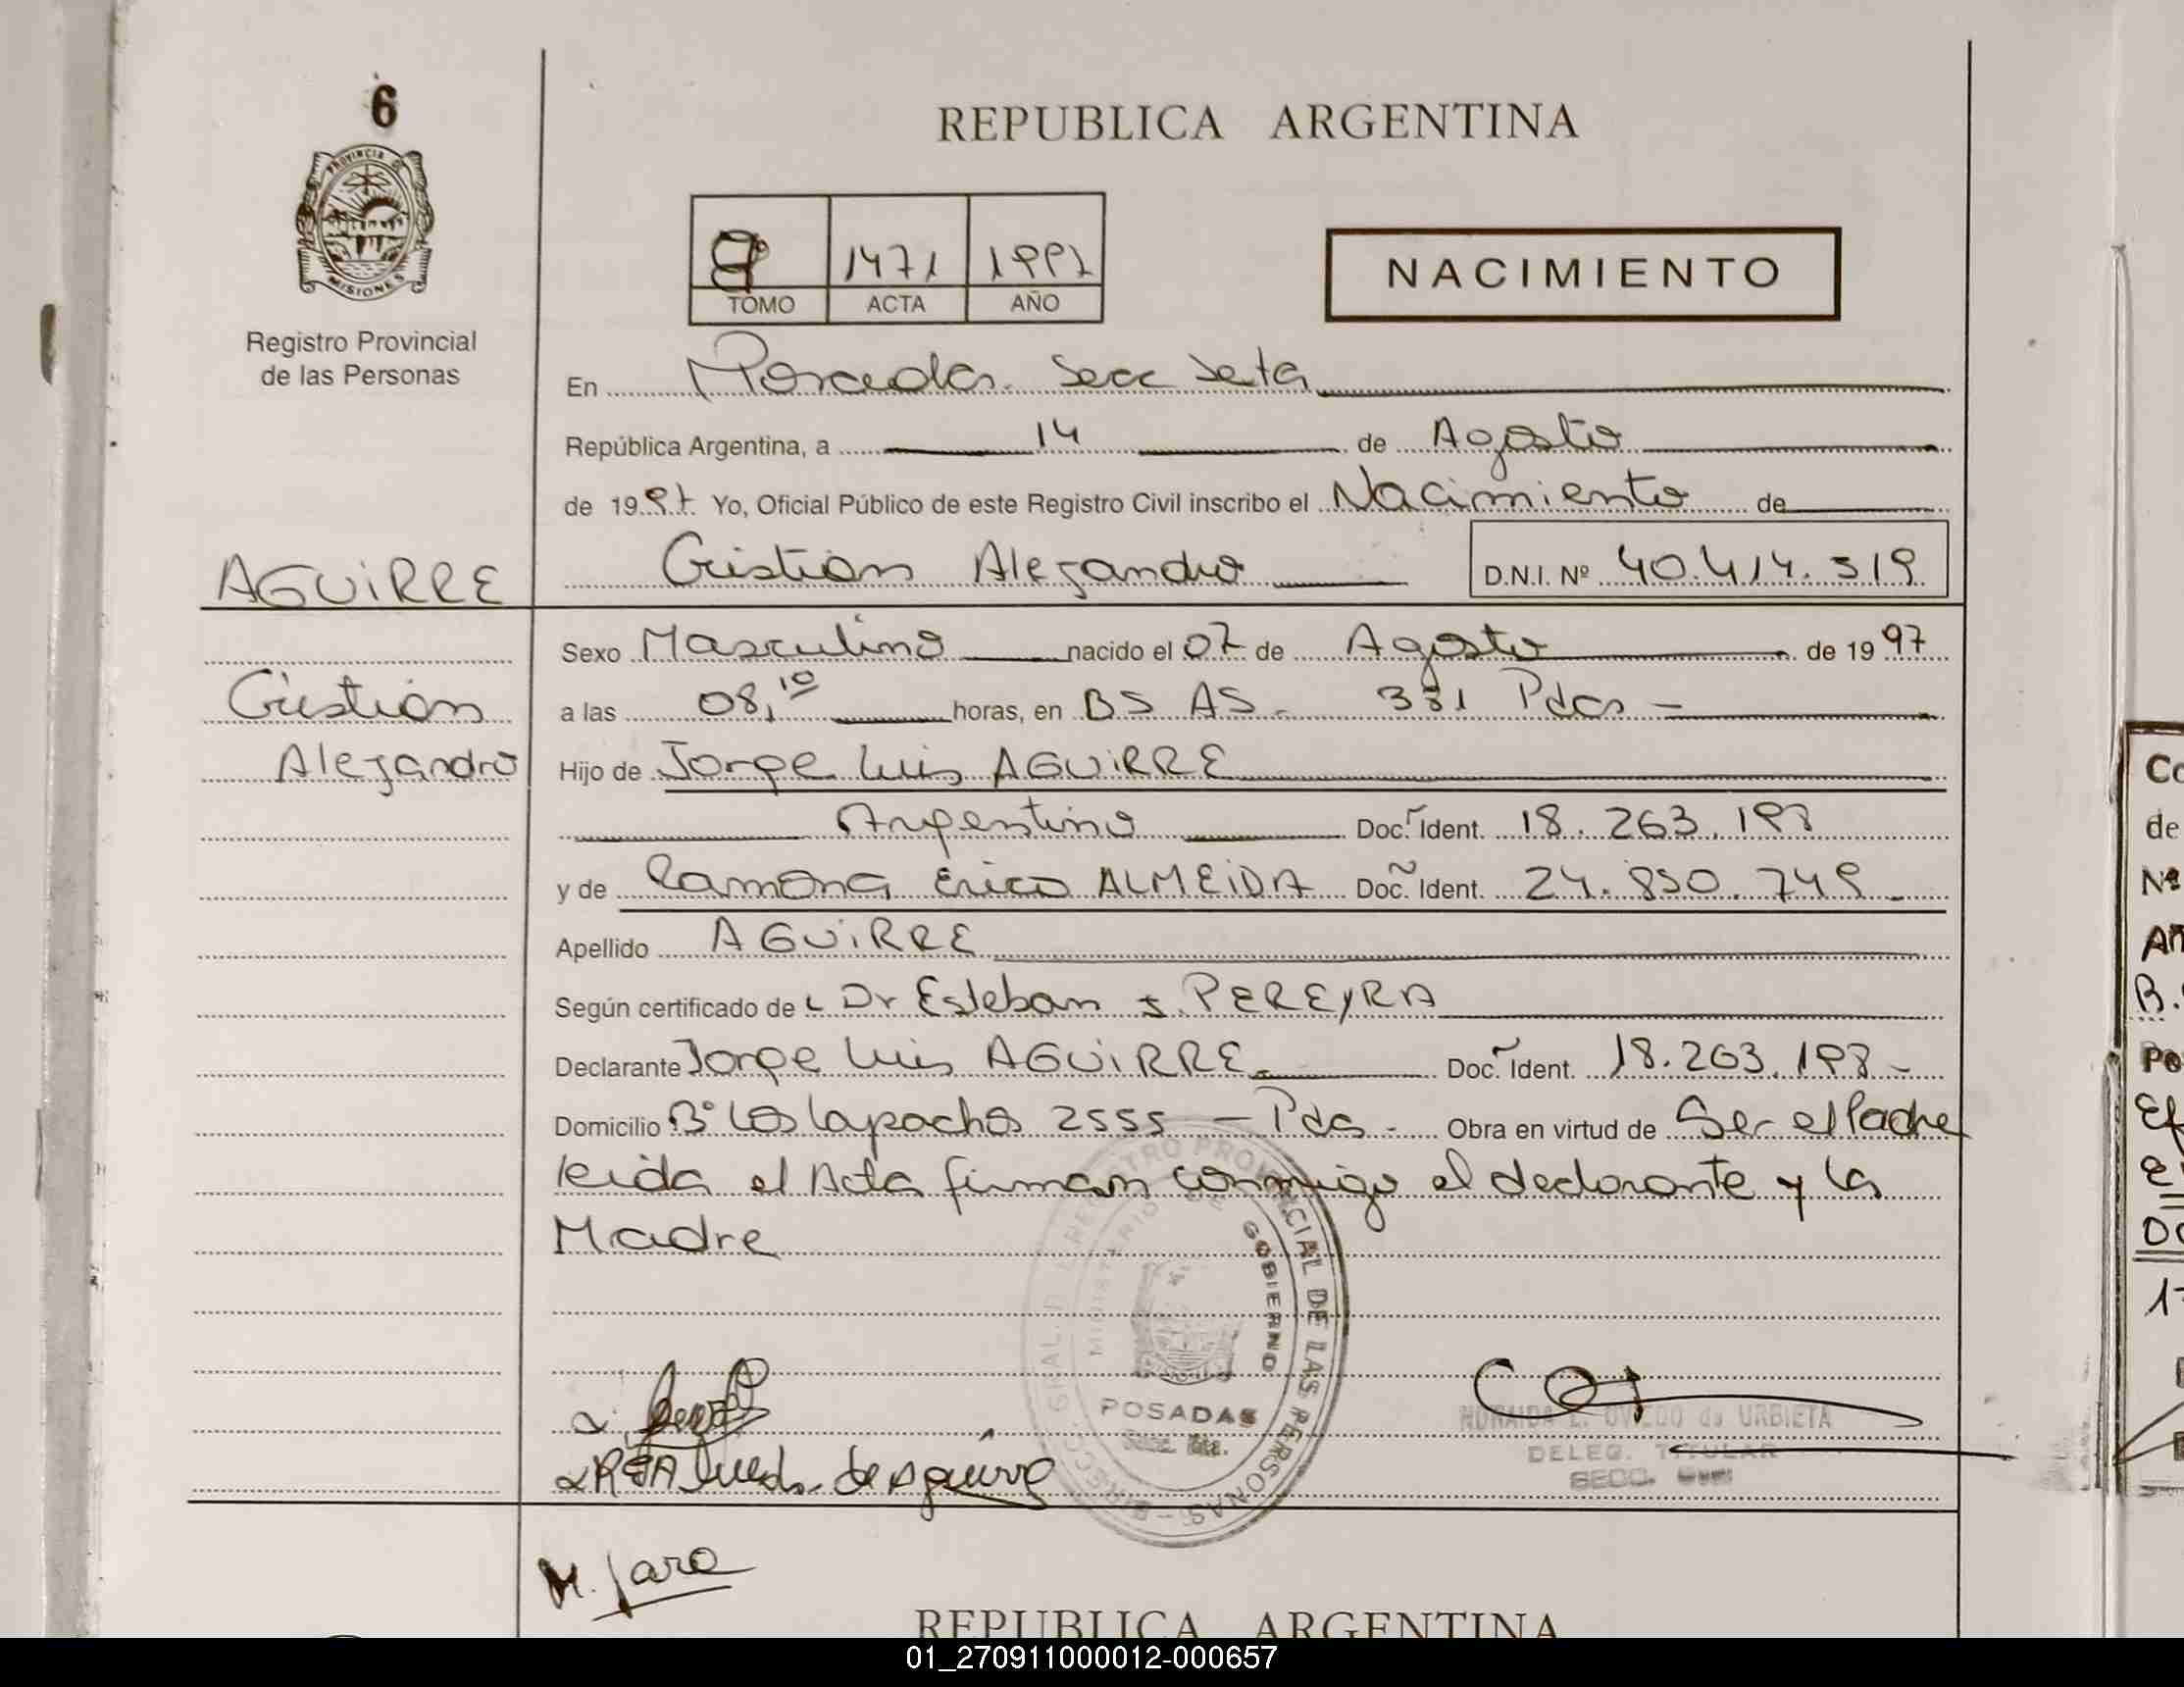 6
PROVINCIA DE
MISIONES
Registro Provincial
de las Personas
REPUBLICA ARGENTINA
1471 1997
TOMO ACTA AÑO
NACIMIENTO
En Posadas. Secc Sexta
República Argentina, a 14 de Agosto
de 1997 Yo, Oficial Público de este Registro Civil inscribo el Nacimiento de
AGUIRRE
Cristian Alejandro D.N.I. Nº 40.414.319
Sexo Masculino nacido el 07 de Agosto de 1997
Cristian
a las 08,10 horas, en BS AS - 331 Pdas -
Alejandro
Hijo de Jorge Luis AGUIRRE
Argentino Doc. Ident. 18.263.198
y de Ramona Erica ALMEIDA Doc. Ident. 24.850.749
Apellido AGUIRRE
Según certificado de Dr Esteban J. PEREYRA
Declarante Jorge Luis AGUIRRE Doc. Ident. 18.263.198 -
Domicilio Bº Los Lapachos 2555 - Pdas - Obra en virtud de Ser el Padre
leida el Acta firman conmigo el declarante y la
Madre
REGISTRO PROVINCIAL DE LAS PERSONAS
MINISTERIO DE GOBIERNO
POSADAS
de Aguirre
OVIEDO de URBIETA
DELEG. TITULAR
SECC.
M. Jara
REPUBLICA ARGENTINA
Co
de
Nº
Po
01_270911000012-000657